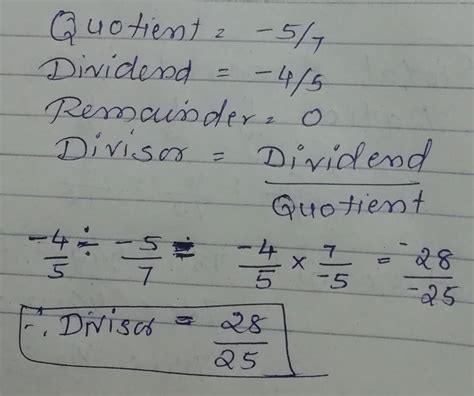 Quotient = -5/7
Dividend = -4/5
Remainder = 0
Divisor = Dividend / Quotient
-4/5 ÷ -5/7 = -4/5 × 7/-5 = -28/-25
∴ Divisor = 28/25